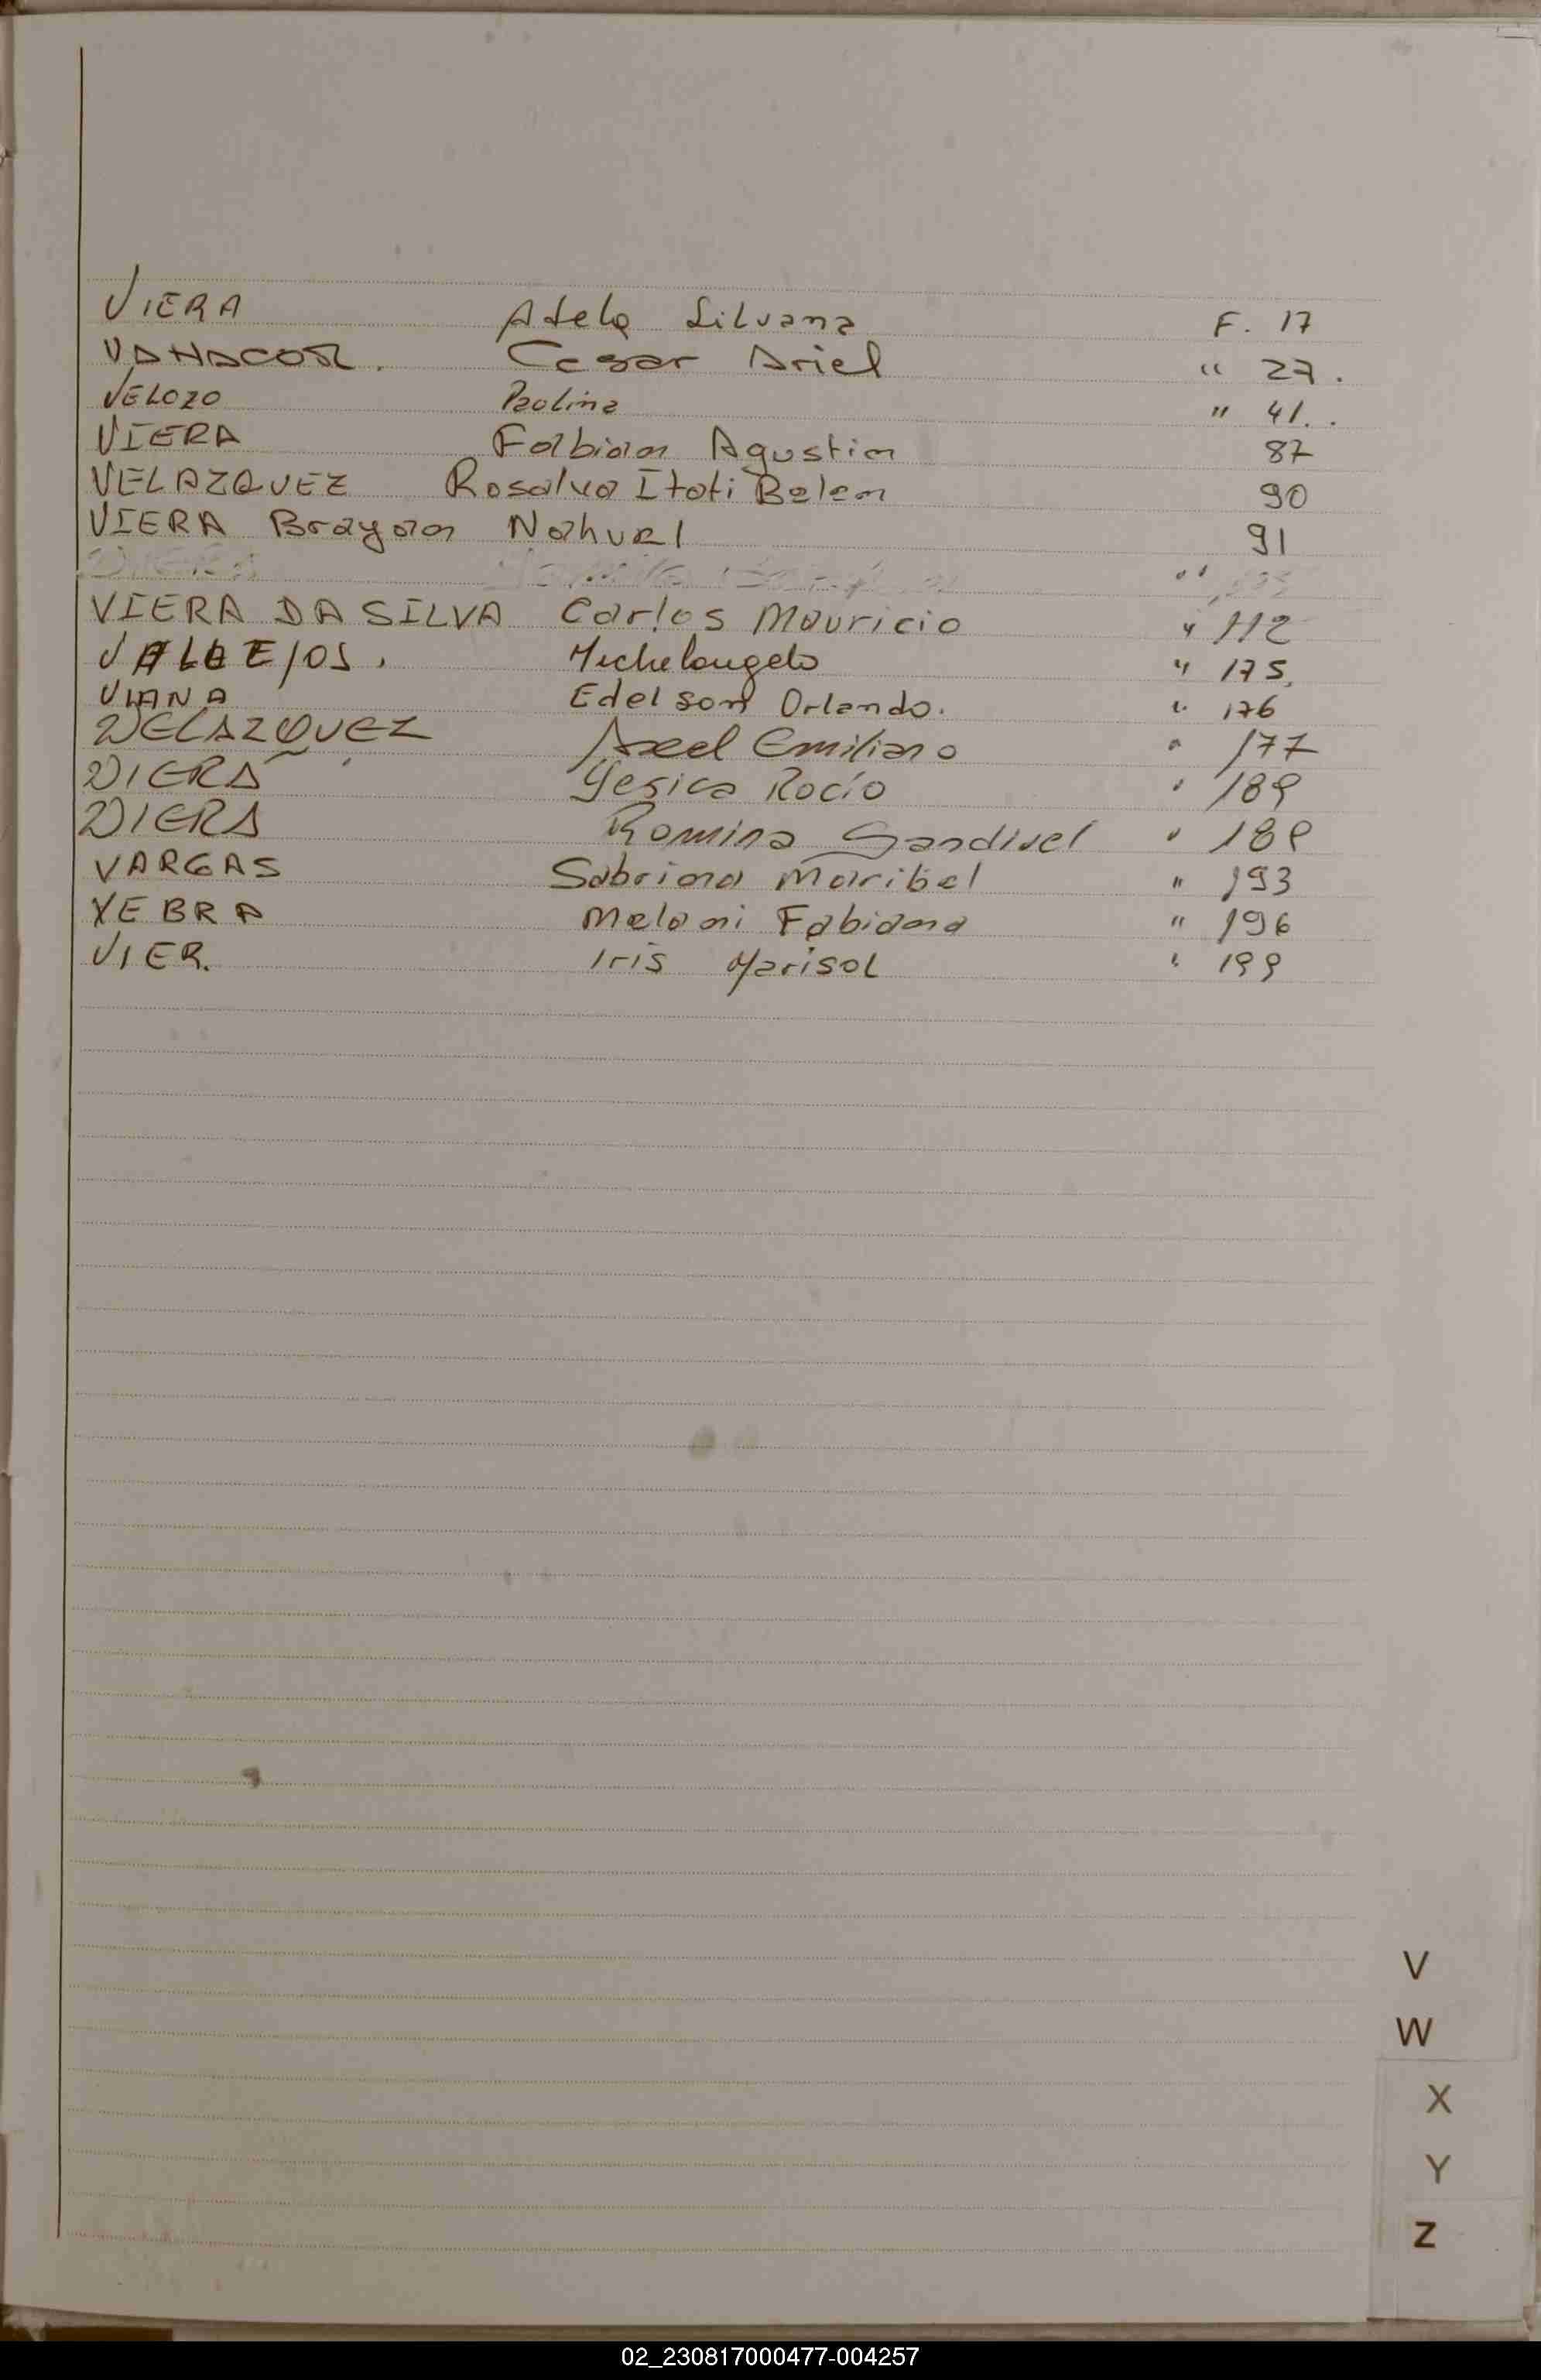 VIERA Adela Silvana F. 17
VANACOR. Cesar Ariel " 27.
VELOZO Paolina " 41..
VIERA Fabian Agustin 87
VELAZQUEZ Rosalva Itati Belen 90
VIERA Brayan Nahuel 91
VIERA "
VIERA DA SILVA Carlos Mauricio " 112
VALLEJOS. Michelangelo " 175.
VIANA Edelson Orlando. " 176
VELAZQUEZ Axel Emiliano " 177
VIERA Yesica Rocío " 189
VIERA Romina Sandivel " 189
VARGAS Sabrina Maribel " 193
YEBRA Melani Fabiana " 196
VIER. Iris Marisol " 199
V
W
X
Y
Z
02_230817000477-004257